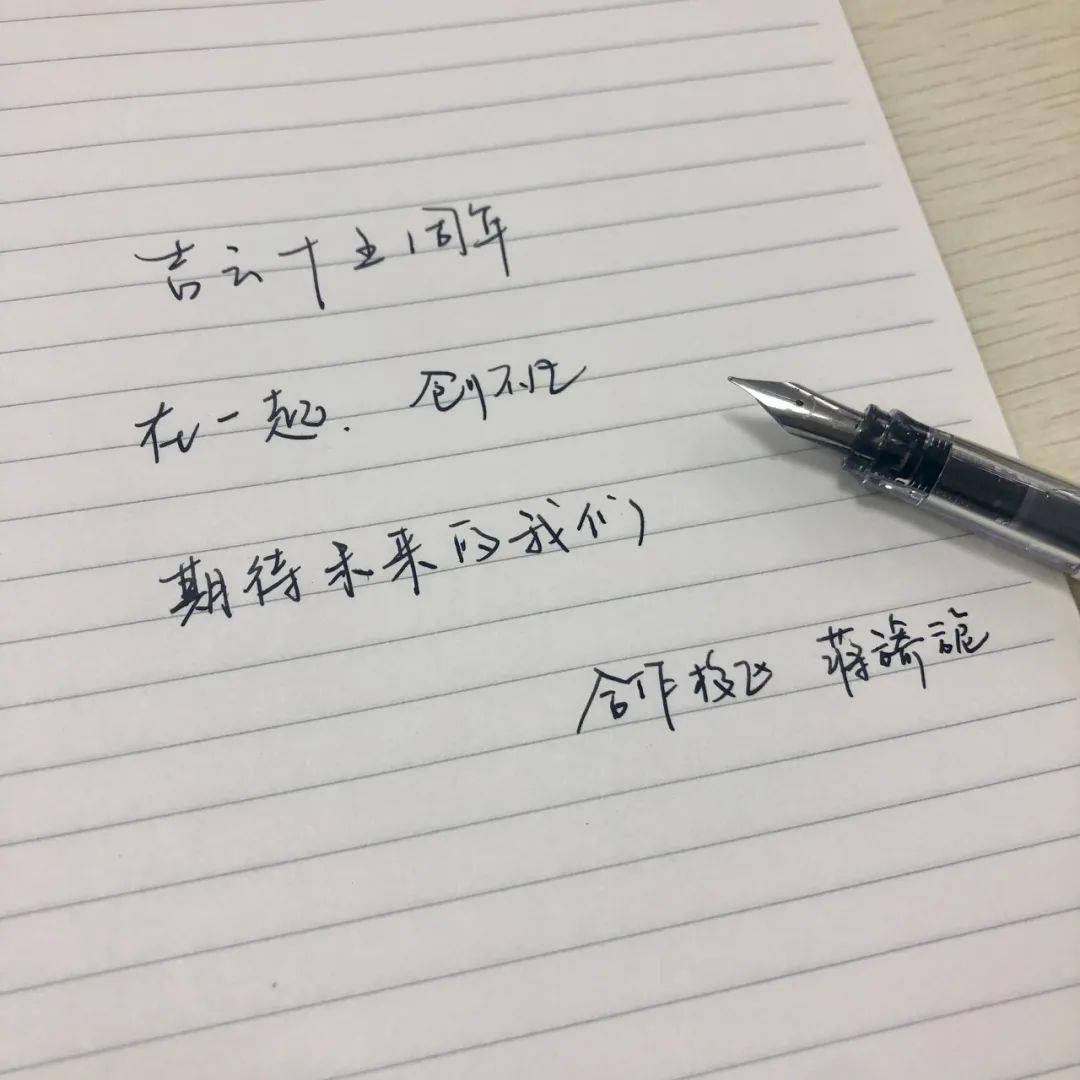 吉云十五周年
在一起. 创不凡
期待未来的我们
合作 蒋